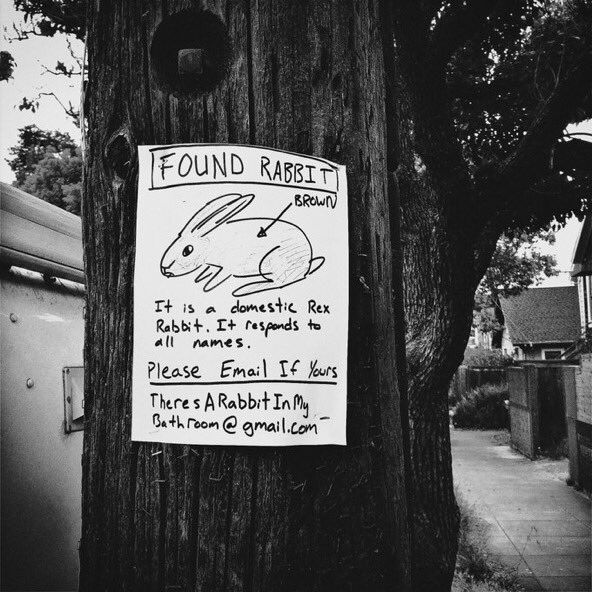 FOUND RABBIT
BROWN
It is a domestic Rex
Rabbit. It responds to
all names.
Please Email If Yours
Theres A Rabbit In My
Bathroom@gmail.com